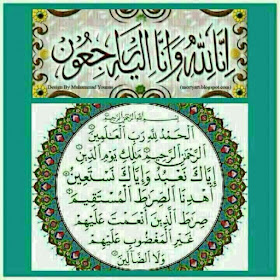 إِنَّا لِلَّهِ وَإِنَّا إِلَيْهِ رَاجِعُونَ
Design By Muhammad Younus
بِسْمِ اللَّهِ الرَّحْمَٰنِ الرَّحِيمِ
الْحَمْدُ لِلَّهِ رَبِّ الْعَالَمِينَ
الرَّحْمَٰنِ الرَّحِيمِ مَالِكِ يَوْمِ الدِّينِ
إِيَّاكَ نَعْبُدُ وَإِيَّاكَ نَسْتَعِينُ
اهْدِنَا الصِّرَاطَ الْمُسْتَقِيمَ
صِرَاطَ الَّذِينَ أَنْعَمْتَ عَلَيْهِمْ
غَيْرِ الْمَغْضُوبِ عَلَيْهِمْ
وَلَا الضَّالِّينَ